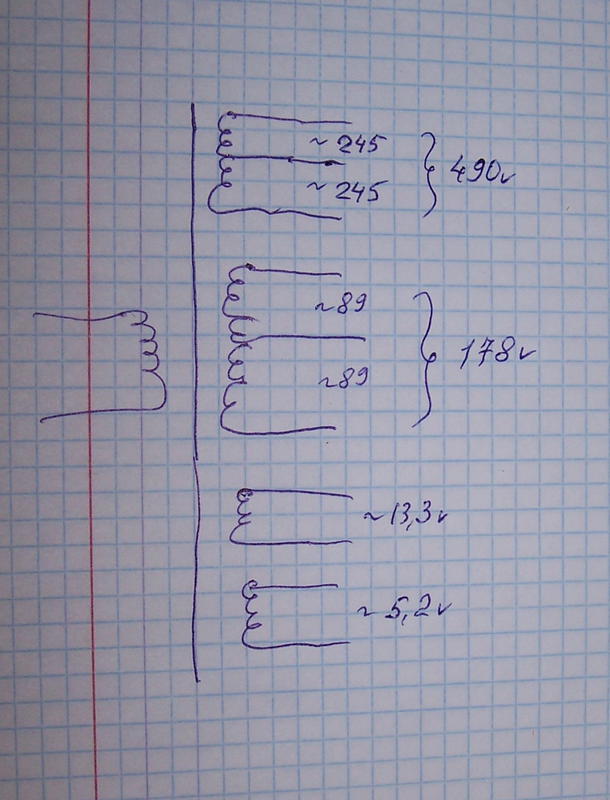 ~ 245
~ 245
490v
~89
~89
178v
~13,3v
~5,2v